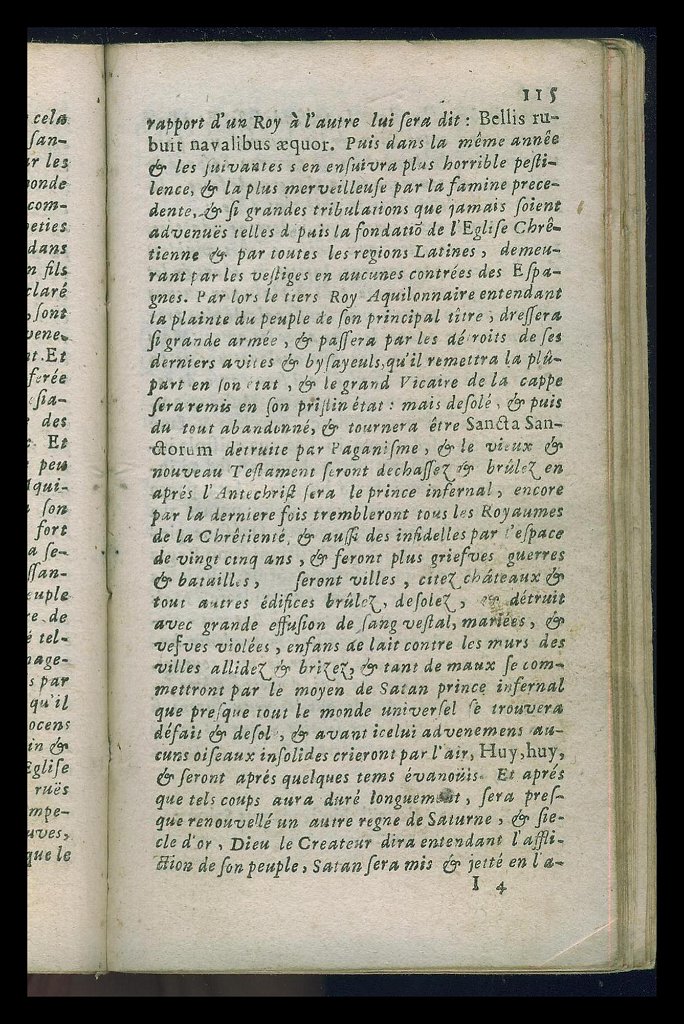 cela
san-
r les
onde
com-
eties
dans
n fils
claré
, sont
vene-
nt. Et
ferée
esia-
des
Et
peu
Aqui-
son
fort
a se-
ssan-
euple
re de
é tel-
nage-
s par
qu'il
ocens
in &
Eglise
ruës
mpe-
uves,
que le
115
rapport d'un Roy à l'autre lui sera dit : Bellis ru-
buit navalibus æquor. Puis dans la même année
& les suivantes s en ensuivra plus horrible pesti-
lence, & la plus merveilleuse par la famine prece-
dente, & si grandes tribulations que jamais soient
advenuës telles d puis la fondatiõ de l'Eglise Chrê-
tienne & par toutes les regions Latines, demeu-
rant par les vestiges en aucunes contrées des Espa-
gnes. Par lors le tiers Roy Aquilonnaire entendant
la plainte du peuple de son principal titre, dressera
si grande armée, & passera par les détroits de ses
derniers avites & bysayeuls, qu'il remettra la plû-
part en son état, & le grand Vicaire de la cappe
sera remis en son pristin état : mais desolé, & puis
du tout abandonné, & tournera être Sancta San-
ctorum detruite par Paganisme, & le vieux &
nouveau Testament seront dechassez & brûlez en
aprés l'Antechrist sera le prince infernal, encore
par la derniere fois trembleront tous les Royaumes
de la Chrêtienté, & aussi des infidelles par l'espace
de vingt cinq ans, & feront plus griefves guerres
& batailles, seront villes, citez châteaux &
tout autres édifices brûlez, desolez, & détruit
avec grande effusion de sang vestal, mariées, &
vefves violées, enfans de lait contre les murs des
villes allidez & brizez, & tant de maux se com-
mettront par le moyen de Satan prince infernal
que presque tout le monde universel se trouvera
défait & desolé, & avant icelui advenemens au-
cuns oiseaux insolides crieront par l'air, Huy, huy,
& seront aprés quelques tems évanoüis. Et aprés
que tels coups aura duré longuement, sera pres-
que renouvellé un autre regne de Saturne, & sie-
cle d'or, Dieu le Createur dira entendant l'affli-
ction de son peuple, Satan sera mis & jetté en l'a-
I 4